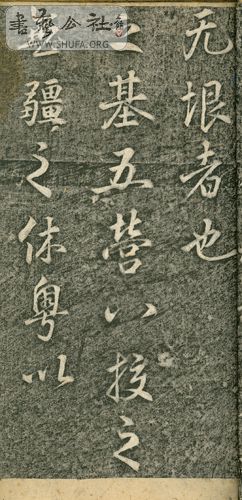 書藝公社
WWW.SHUFA.ORG
无垠者也
之基五營八校之
無疆之休粵以